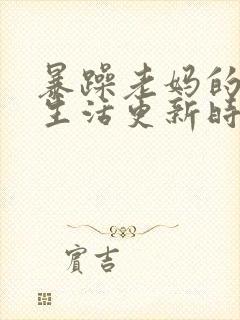 暴躁老妈的
生活更新时
賓吉